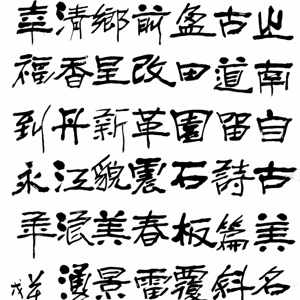 山南自古美名
古道留詩篇斜
盈田園石板覆
前改革震春雷
鄉呈新貌美景
清香丹江浪
幸福到永年